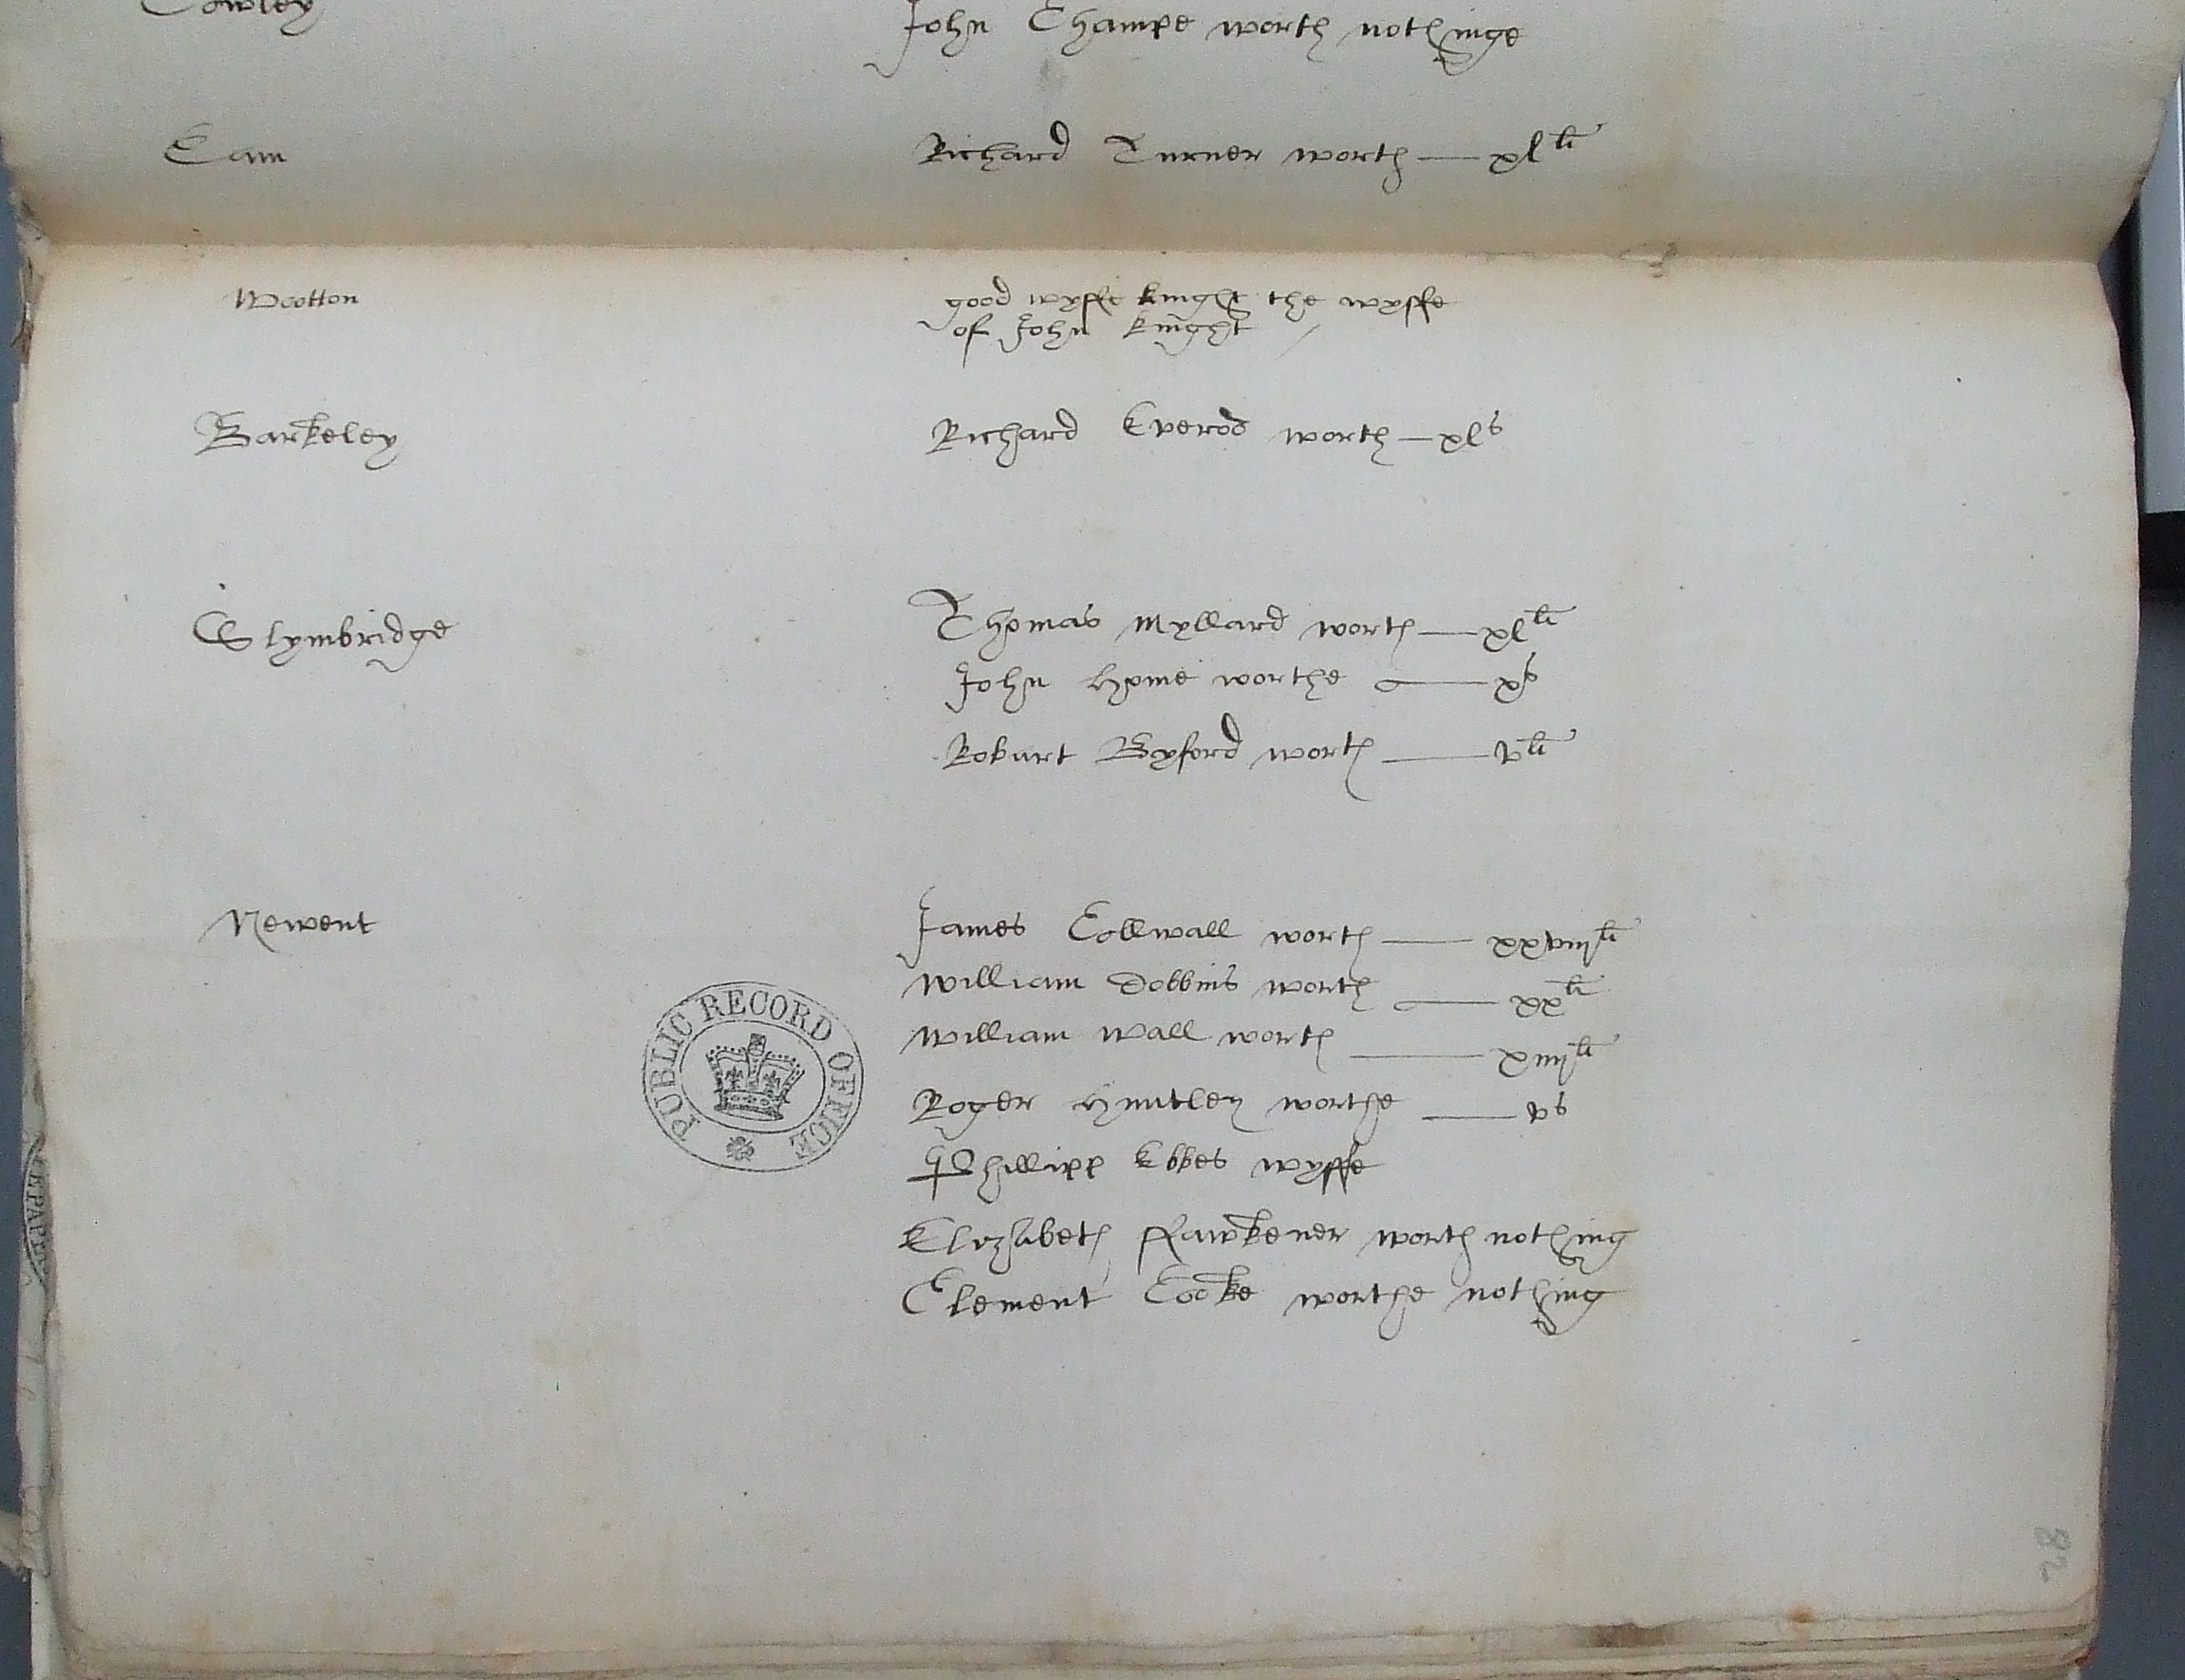 Cowley John Champe worth nothinge
Cam Richard Turner worth — xl li
Wootton good wyffe knight the wyffe
of John knight
Barkeley Richard Everod worth — xl s
Slymbridge Thomas Myllard worth — xl li
John Home worthe — x s
Roburt Byford worth — v li
Newent James Collwall worth — xxviij li
William Dobbins worth — xx li
William Wall worth — xiiij li
Roger Huntley worthe — v s
Phillipp Ebbes wyffe
Elizabeth ffawkener worth nothing
Clement Cooke worthe nothing
PUBLIC RECORD OFFICE
82